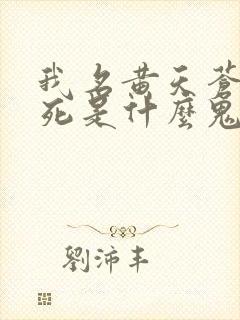 我名黄天蒼
死是什麼鬼
劉沛丰